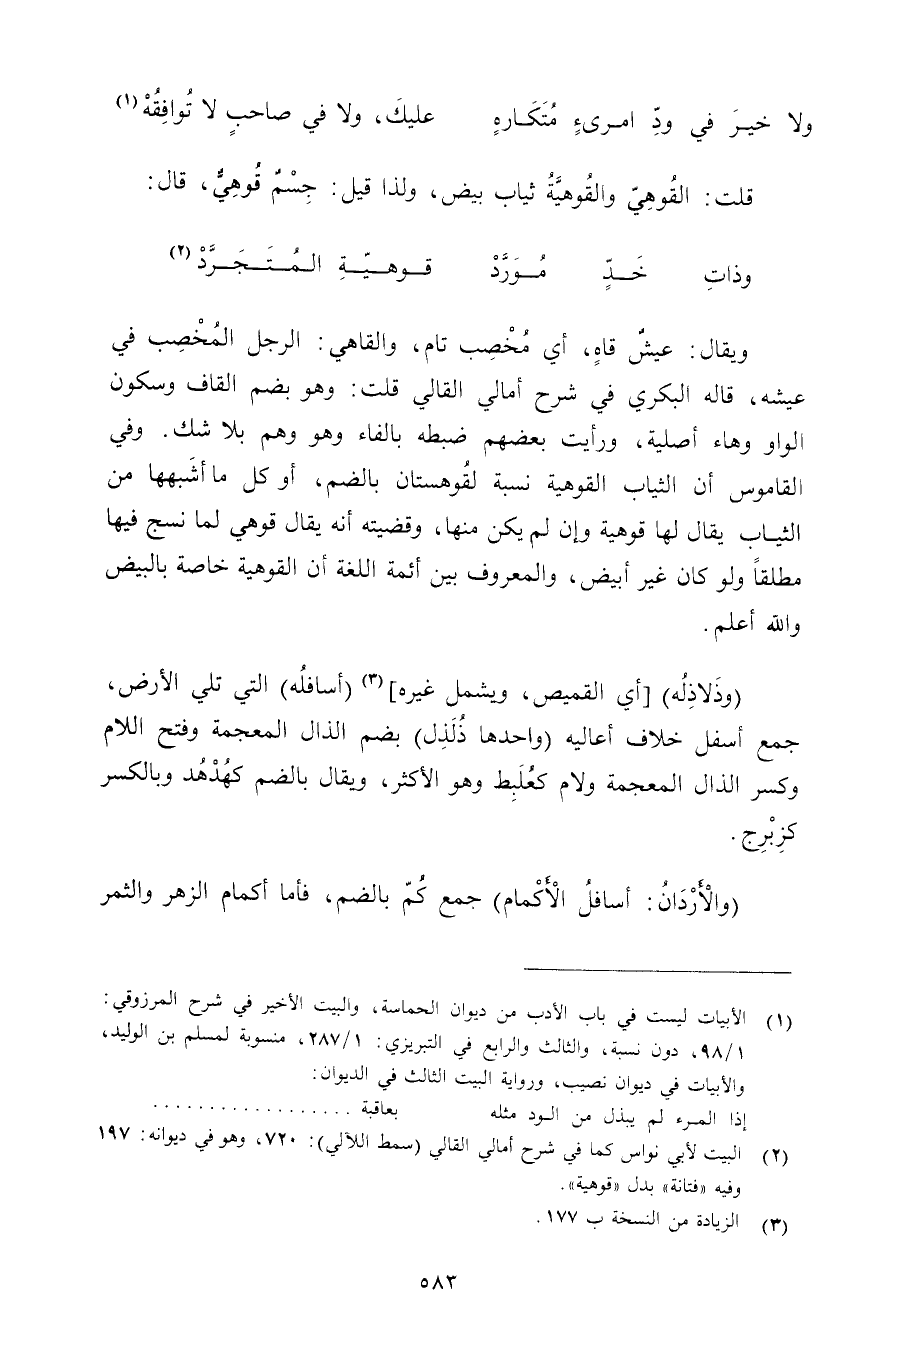 ولا خيـرَ في ودِّ امـرىءٍ مُتَكَـارهٍ عليكَ، ولا في صاحبٍ لا تُوافِقُهْ (١)
قلت: القُوهِيّ والقُوهيَّةُ ثياب بيض، ولذا قيل: جِسْمٌ قُوهِيٌّ، قال:
وذاتِ خَـدٍّ مُـوَرَّدْ قـوهـيّـةِ الـمُـتَـجَـرَّدْ (٢)
ويقال: عيشٌ قاهٍ، أي مُخْصِب تام، والقاهي: الرجل المُخْصِب في
عيشه، قاله البكري في شرح أمالي القالي قلت: وهو بضم القاف وسكون
الواو وهاء أصلية، ورأيت بعضهم ضبطه بالفاء وهو وهم بلا شك. وفي
القاموس أن الثياب القوهية نسبة لقُوهستان بالضم، أو كل ما أشَبهها من
الثيـاب يقال لها قوهية وإن لم يكن منها، وقضيته أنه يقال قوهي لما نسج فيها
مطلقاً ولو كان غير أبيض، والمعروف بين أئمة اللغة أن القوهية خاصة بالبيض
والله أعلم.
(وذَلاذِلُه) [أي القميص، ويشمل غيره] (٣) (أسافلُه) التي تلي الأرض،
جمع أسفل خلاف أعاليه (واحدها ذُلَذِل) بضم الذال المعجمة وفتح اللام
وكسر الذال المعجمة ولام كعُلَبِط وهو الأكثر، ويقال بالضم كهُدْهُد وبالكسر
كزِبْرِج.
(والْأَرْدَانُ: أسافلُ الْأَكْمام) جمع كُمّ بالضم، فأما أكمام الزهر والثمر
(١) الأبيات ليست في باب الأدب من ديوان الحماسة، والبيت الأخير في شرح المرزوقي:
٩٨/١، دون نسبة، والثالث والرابع في التبريزي: ٢٨٧/١، منسوبة لمسلم بن الوليد،
والأبيات في ديوان نصيب، ورواية البيت الثالث في الديوان:
إذا المـرء لم يبذل من الـود مثله بعاقبة . . . . . . . . . . . . . . . . . .
(٢) البيت لأبي نواس كما في شرح أمالي القالي (سمط اللآلي): ٧٢٠، وهو في ديوانه: ١٩٧
وفيه «فتانة» بدل «قوهية».
(٣) الزيادة من النسخة ب ١٧٧.
٥٨٣